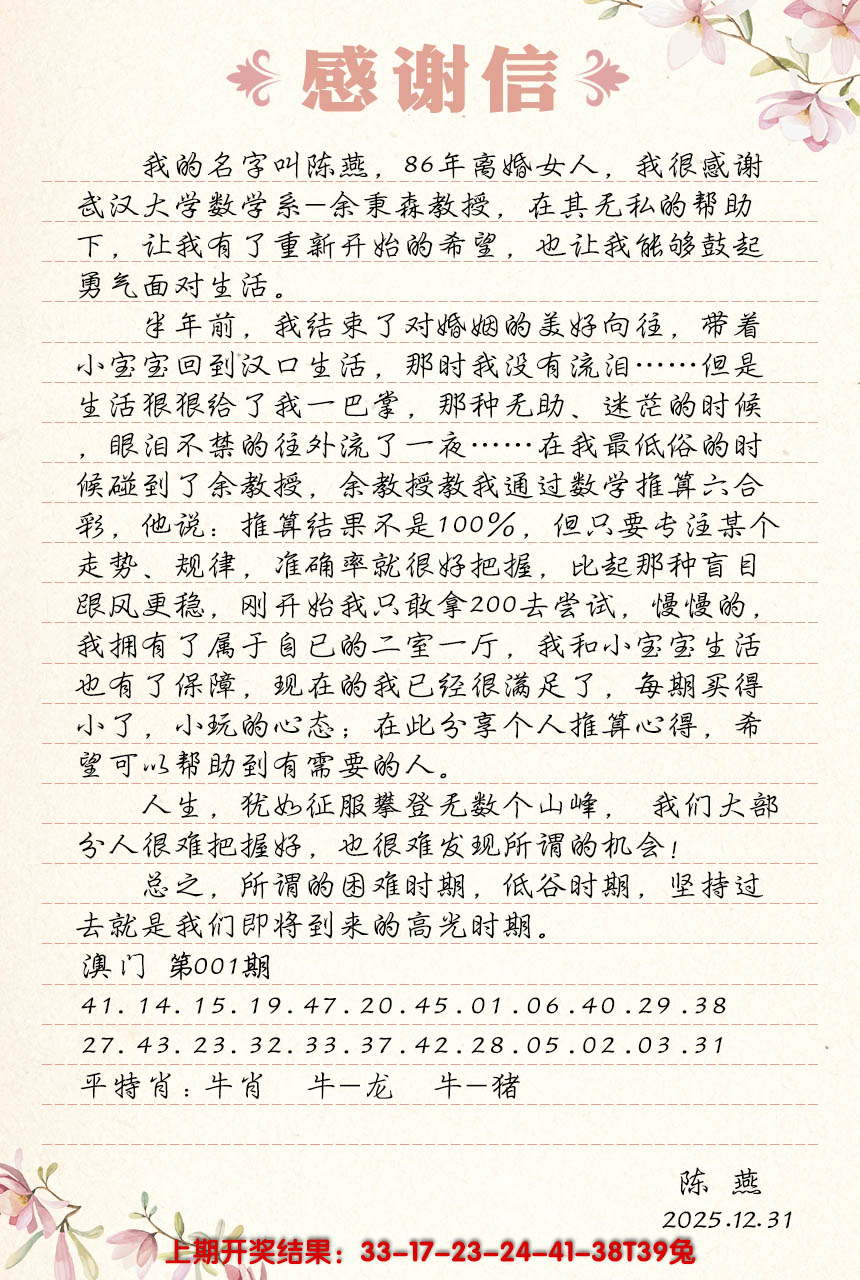 感谢信
我的名字叫陈燕，86年离婚女人，我很感谢
武汉大学数学系—余秉森教授，在其无私的帮助
下，让我有了重新开始的希望，也让我能够鼓起
勇气面对生活。
半年前，我结束了对婚姻的美好向往，带着
小宝宝回到汉口生活，那时我没有流泪……但是
生活狠狠给了我一巴掌，那种无助、迷茫的时候
，眼泪不禁的往外流了一夜……在我最低俗的时
候碰到了余教授，余教授教我通过数学推算六合
彩，他说：推算结果不是100%，但只要专注某个
走势、规律，准确率就很好把握，比起那种盲目
跟风更稳，刚开始我只敢拿200去尝试，慢慢的，
我拥有了属于自已的二室一厅，我和小宝宝生活
也有了保障，现在的我已经很满足了，每期买得
小了，小玩的心态；在此分享个人推算心得，希
望可以帮助到有需要的人。
人生，犹如征服攀登无数个山峰， 我们大部
分人很难把握好，也很难发现所谓的机会！
总之，所谓的困难时期，低谷时期，坚持过
去就是我们即将到来的高光时期。
澳门 第001期
41.14.15.19.47.20.45.01.06.40.29.38
27.43.23.32.33.37.42.28.05.02.03.31
平特肖：牛肖 牛—龙 牛—猪
陈 燕
2025.12.31
上期开奖结果：33-17-23-24-41-38T39兔